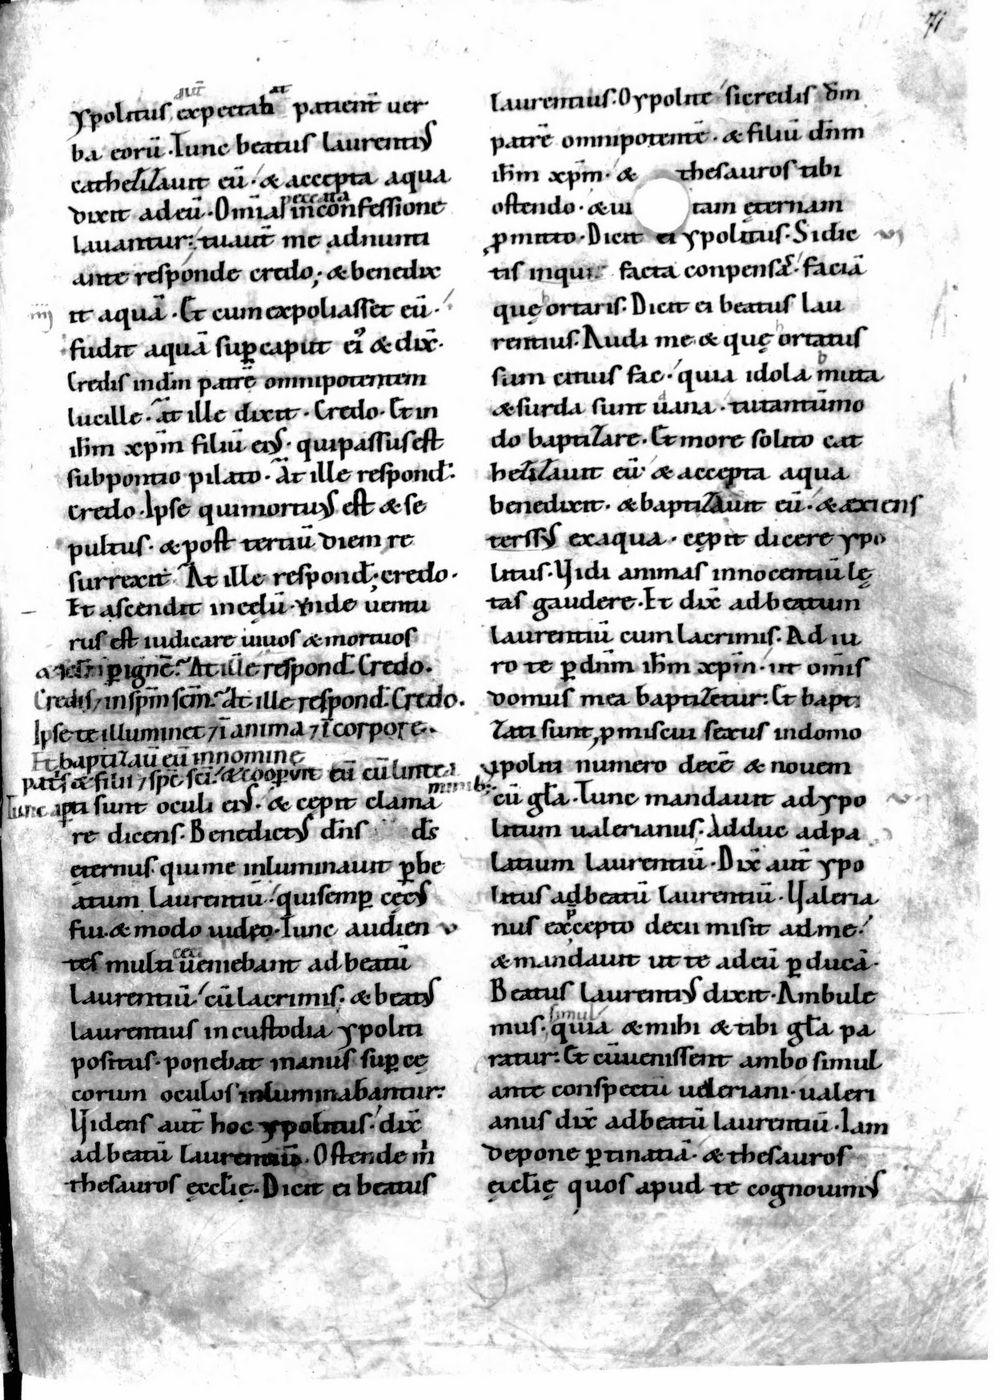 71
aut̄ at
ypolitus expectab patient̄ uer
ba eorū. Tunc beatus laurentiꝰ
cathetizauit eū. & accepta aqua
peccata
dixit ad eū. Om̄ia in confessione
lauantur: tu aut̄ me ad nunti
ante responde credo; & benedix
it aquā. Et cum expoliasset eū.
fudit aquā suꝑ caput eiꝰ & dix̄.
Credis in dm̄ patrē omnipotentem
lucille. At ille dixit. Credo. Et in
ih̄m xp̄m filiū eiꝰ. qui passus est
sub pontio pilato. At ille respond̄.
credo. Ipse qui mortuꝰ est & se
pultus. & post tertiū diem re
surrexit. At ille respond̄; credo.
Et ascendit in celū. Vnde uentu
rus est iudicare uiuos & mortuos
ꝑ ignē. At ille respond̄. Credo.
Credis ⁊ in sp̄m sc̄m. At ille respond̄. Credo.
Ipse te illuminet ⁊ ī anima ⁊ ī corpore.
Et baptizauit eū in nomine
pat̄s & filii ⁊ sp̄s sc̄i. & cooꝑuit eū cū lintea
minib;
Tunc apti sunt oculi eiꝰ. & cepit clama
re dicens. Benedictꝰ dn̄s d̄s
ęternus. qui me inluminauit ꝑ be
atum laurentiū. qui semꝑ cęcꝰ
fui. & modo uideo. Tunc audien
ceci
tes multi ueniebant ad beatū
laurentiū. cū lacrimis. & beatꝰ
laurentius in custodia ypoliti
positus. ponebat manus suꝑ cę
corum oculos inluminabantur:
Videns aut̄ hoc ypolitus. dix̄
ad beatū laurentiū. Ostende m̄
thesauros ęccl̄ię. Dicit ei beatus
laurentius. O ypolite si credis dm̄
patrē omnipotentē. & filiū dn̄m
ih̄m xp̄m. & thesauros tibi
ostendo. & ui tam ęternam
ꝓmitto. Dicit ei ypolitus. Si dic
tis facta faciā
quę ortaris. Dicit ei beatus lau
rentius. Audi me & quę ortatus
sum citius fac. quia idola muta
& surda sunt uana. tu tantūmo
do baptizare. Et more solito cat
hetizauit eū & accepta aqua
benedixit. & baptizauit eū. & exiens
ex aqua. cępit dicere ypo
litus. Vidi animas innocentiū lę
tas gaudere. Et dix̄ ad beatum
laurentiū cum lacrimis. Ad iu
ro te ꝑ dn̄m ih̄m xp̄m. ut om̄is
domus mea baptizetur: Et bapti
zati sunt ꝓmiscui sexus in domo
ypoliti numero decē & nouem
cū gl̄a. Tunc mandauit ad ypo
litum ualerianus. Adduc ad pa
latium laurentiū. Dix̄ aut̄ ypo
litus ad beatū laurentiū. Valeria
nus decii misit ad me.
& mandauit ut te ad eū ꝑducā.
Beatus laurentiꝰ dixit. Ambule
simul
mus. quia & mihi & tibi gl̄a pa
ratur: Et cū uenissent ambo simul
ante conspectū ualeriani. ualeri
anus dix̄ ad beatū laurentiū. Iam
depone ꝑtinatiā. & thesauros
ęccl̄ię quos apud te cognouimꝰ